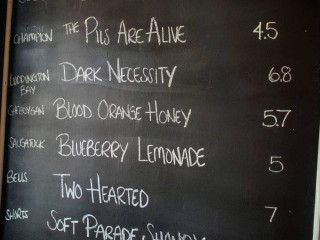 CHAMPION THE PILS ARE ALIVE 4.5
LUDDINGTON BAY DARK NECESSITY 6.8
CHEBOYGAN BLOOD ORANGE HONEY 5.7
SAUGATUCK BLUEBERRY LEMONADE 5
BELLS TWO HEARTED 7
SHORTS SOFT PARADE SHANDY